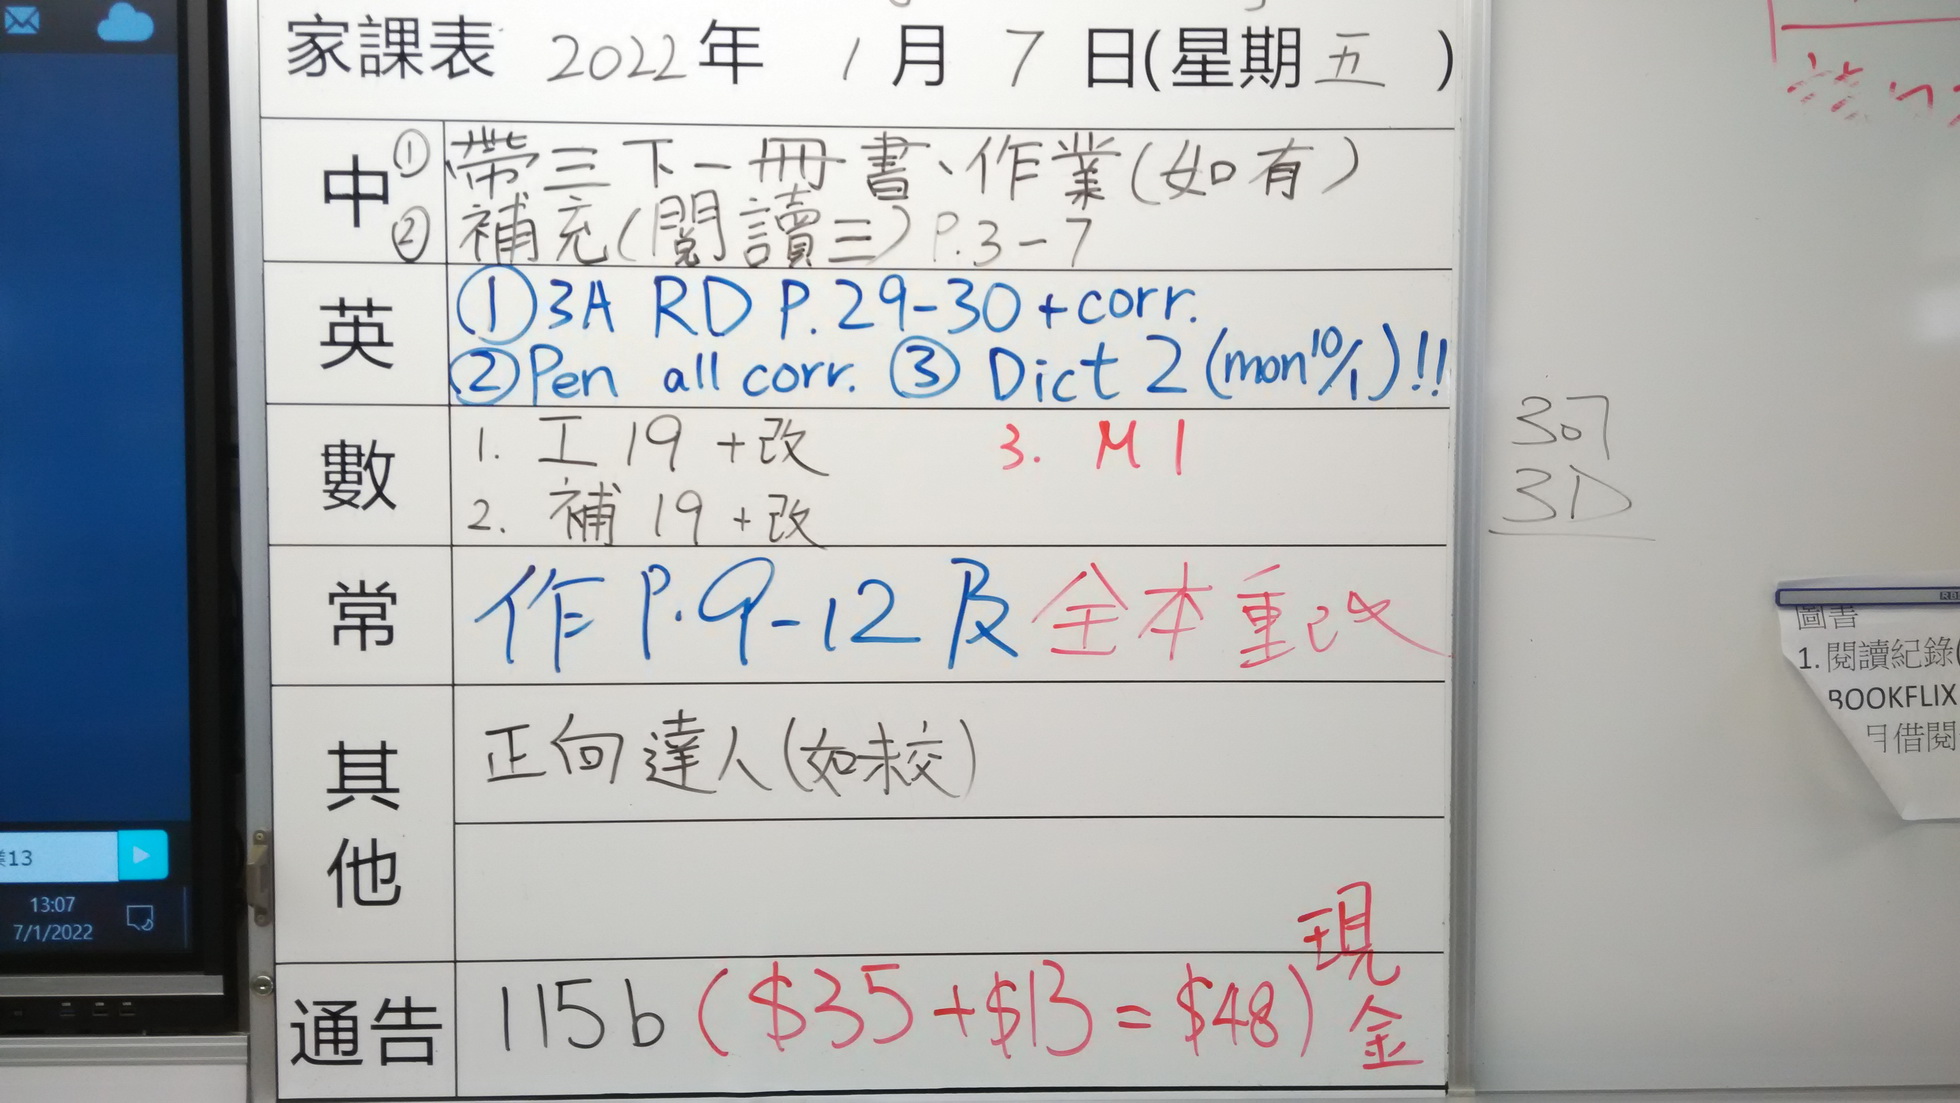 家課表 2022年 1月 7日(星期五)
中 ①帶三下一冊書、作業(如有)
②補充(閱讀三) P.3-7
英 ①3A RD P.29-30+corr.
②Pen all corr. ③ Dict 2 (mon 10/1)!!
數 1. 工 19 +改 3. M1
2. 補 19 +改
常 作 P.9-12 及 全本重改
其他 正向達人(如未交)
通告 115b ($35+$13=$48) 現金
307
3D
圖書
1. 閱讀紀錄(
BOOKFLIX
日借閱
13
13:07
7/1/2022